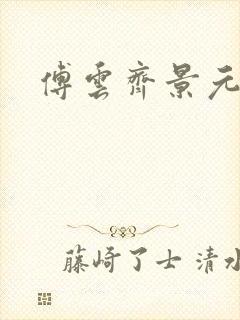 傅雲齊景元
藤崎了士 清水